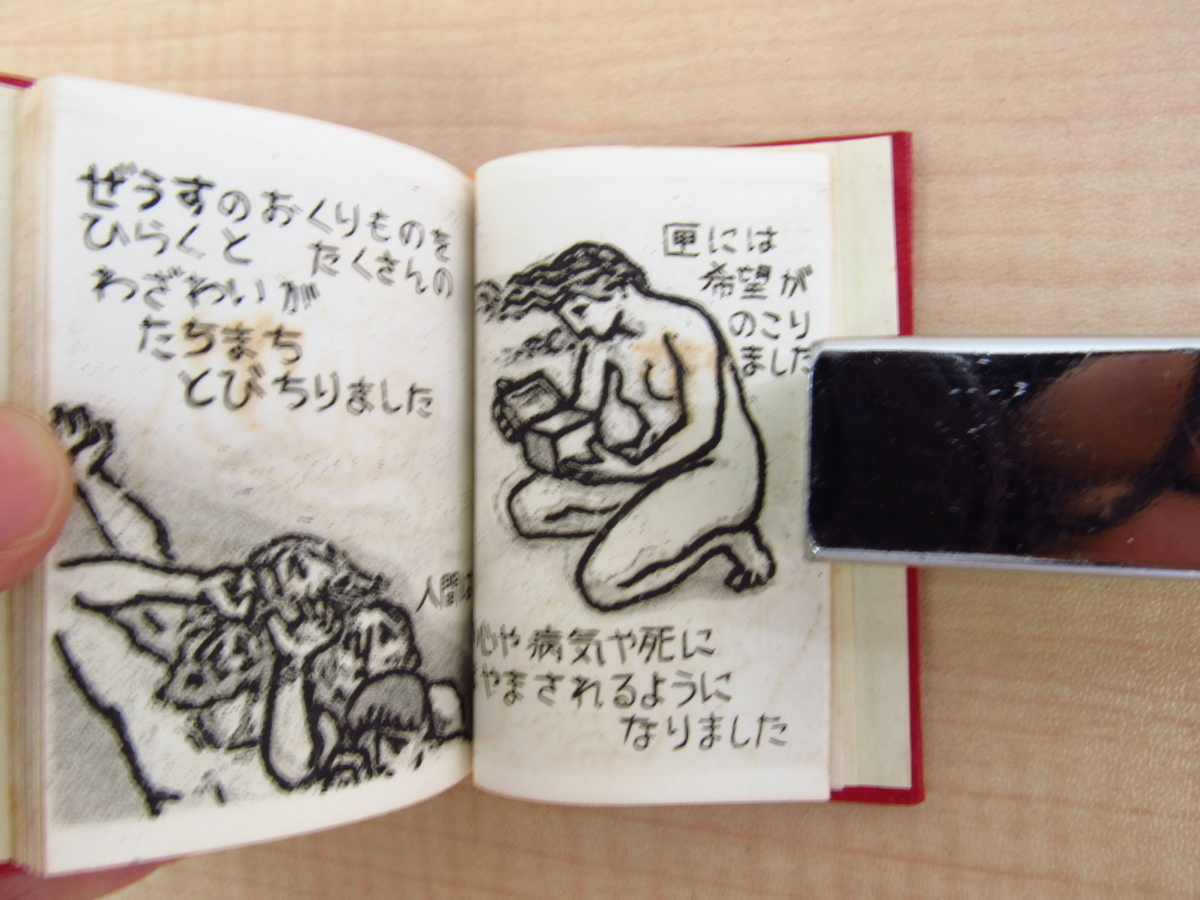 ぜうすのおくりものを
ひらくと たくさんの
わざわいが
たちまち
とびちりました
人間は
心や病気や死に
やまされるように
なりました
匣には
希望が
のこり
ました